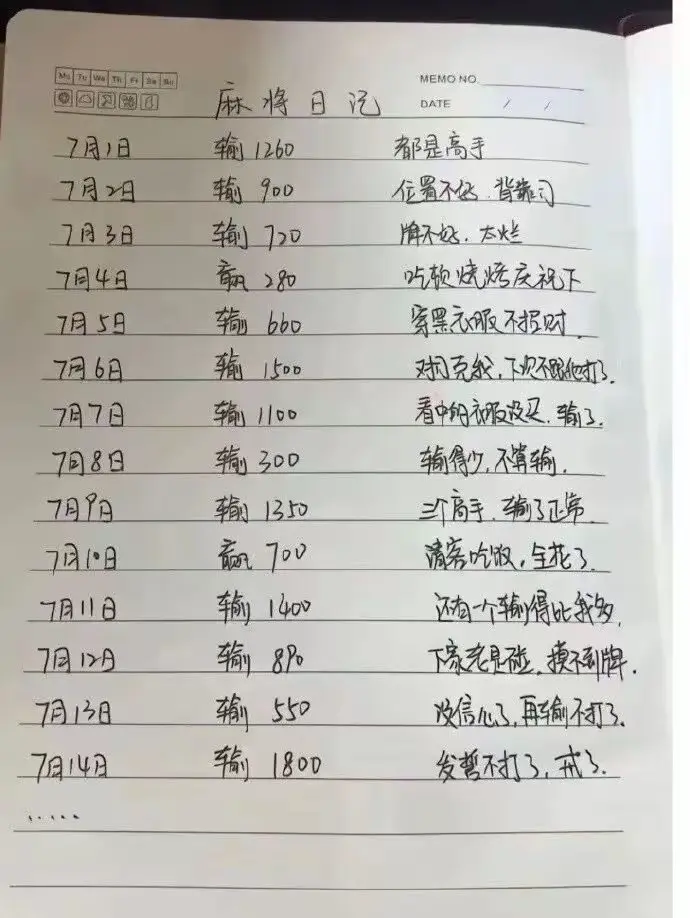 Mo Tu We Th Fr Sa Su
MEMO NO.
DATE / /
麻将日记
7月1日 输 1260 都是高手
7月2日 输 900 位置不好.背靠门
7月3日 输 720 牌不好.太烂
7月4日 赢 280 吃顿烧烤庆祝下
7月5日 输 660 穿黑衣服不招财.
7月6日 输 1500 对门克我,下次不跟他打了.
7月7日 输 1100 看中的衣服没买.输了.
7月8日 输 300 输得少,不算输.
7月9日 输 1350 三个高手.输了正常.
7月10日 赢 700 请客吃饭,全花了.
7月11日 输 1400 还有一个输得比我多.
7月12日 输 890 下家老是碰,摸不到牌.
7月13日 输 550 没信心了,再输不打了.
7月14日 输 1800 发誓不打了,戒了.
.....